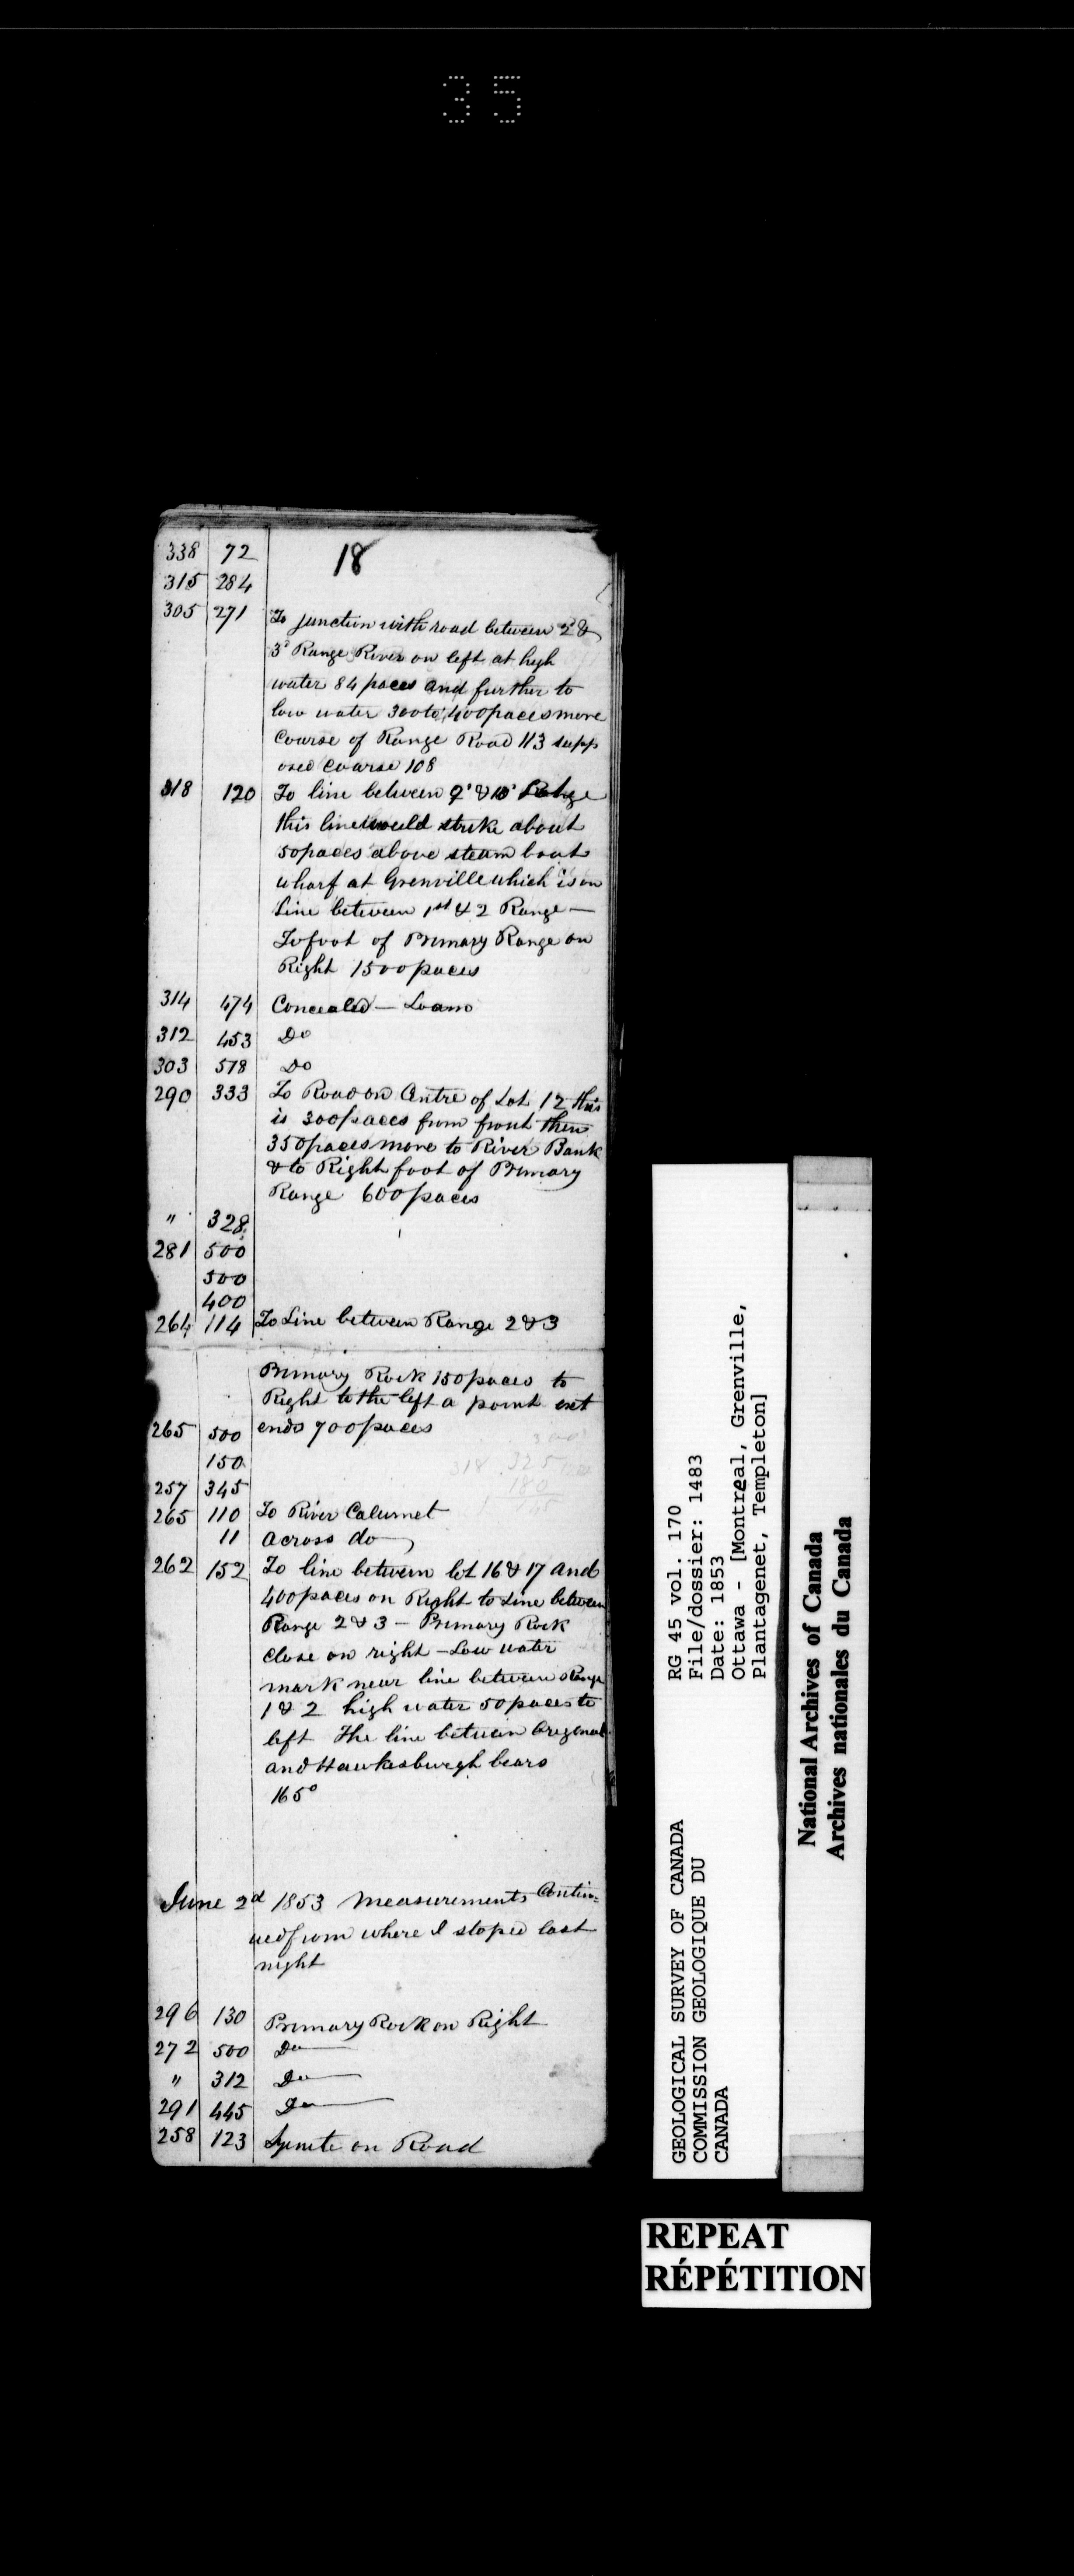 35
18
338 72
315 284
305 271 To junction with road between 2 &
3d Range River on left at high
water 84 paces and further to
low water 300 to 400 paces more
course of Range Road 113 supp
osed course 108
318 120 To line between 9' & 10' Range
this line would strike about
50 paces above steam boat
wharf at Grenville which is on
Line between 1st & 2 Range —
To foot of Primary Range on
Right 1500 paces
314 474 Concealed — Loam
312 453 Do
303 578 Do
290 333 To Road on Centre of Lot 12 this
is 300 paces from front then
350 paces more to River Bank
& to Right foot of Primary
Range 600 paces
" 328
281 500
500
400
264 114 To Line between Range 2 & 3
Primary Rock 150 paces to
Right to the left a point ext
265 500 ends 700 paces
150
257 345
318 325
180
145
265 110 To River Calumet
11 across do
262 152 To line between lot 16 & 17 and
400 paces on Right to Line between
Range 2 & 3 — Primary Rock
close on right — Low water
mark near line between Range
1 & 2 high water 50 paces to
left The line between Origenal
and Hawkesburgh bears
165°
June 2d 1853 Measurements Contin=
ued from where I stoped last
night
296 130 Primary Rock on Right
272 500 Do
" 312 Do
291 445 Do
258 123 Syenite on Road
GEOLOGICAL SURVEY OF CANADA
COMMISSION GEOLOGIQUE DU
CANADA
RG 45 vol. 170
File/dossier: 1483
Date: 1853
Ottawa - [Montreal, Grenville,
Plantagenet, Templeton]
National Archives of Canada
Archives nationales du Canada
REPEAT
RÉPÉTITION